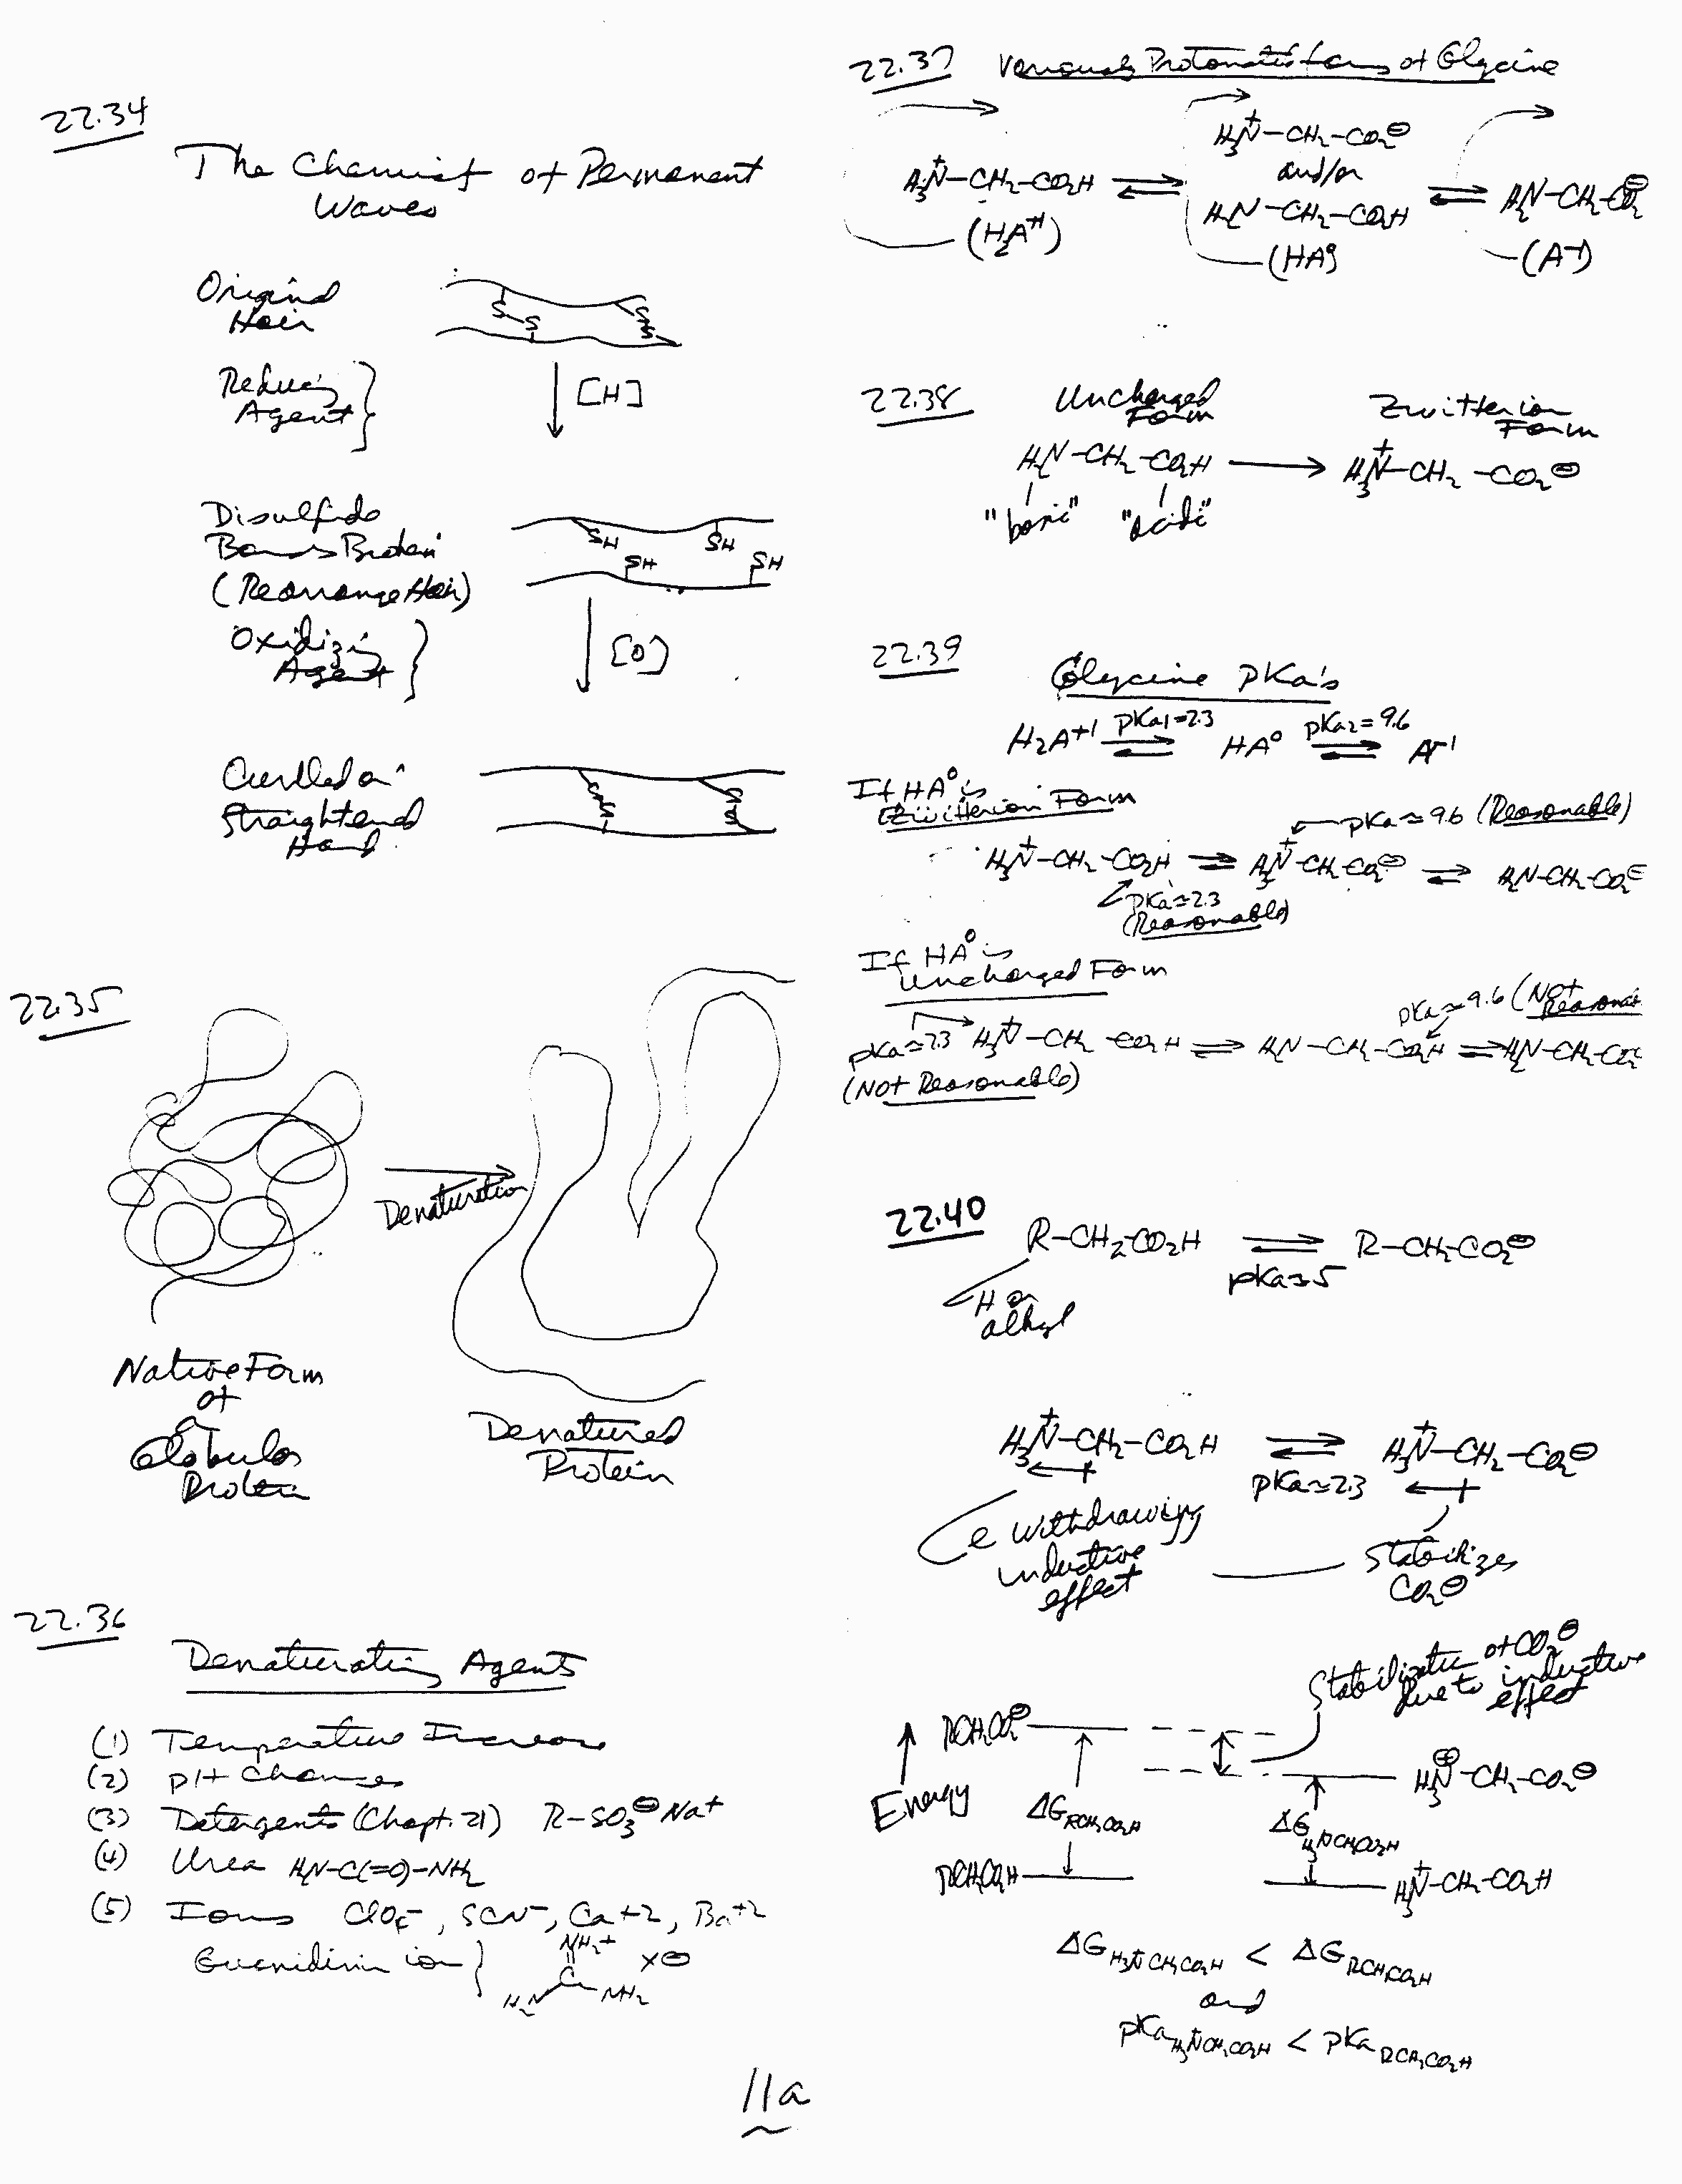 22.34
The Chemist of Permanent
Waves
Original
Hair
S
S
S
S
Reducing
Agent
[H]
Disulfide
Bonds Broken
(Rearrange Hair)
SH
SH
SH
SH
Oxidizing
Agent
[O]
Curlled or
Straightened
S
S
S
S
22.35
Denaturation
Native Form
of
a
Globular
Protein
Denatured
Protein
22.36
Denaturating Agents
(1) Temperature Increase
(2) pH Changes
(3) Detergents (Chapt. 21) R-SO3⊖Na+
(4) Urea H2N-C(=O)-NH2
(5) Ions ClO4-, SCN-, Ca+2, Ba+2
Guanidinium ion
NH2+
C
H2N
NH2
X⊖
22.37 Variously Protonated forms of Glycine
H3N+-CH2-CO2H ⇌
H3N+-CH2-CO2⊖
and/or
H2N-CH2-CO2H
⇌ H2N-CH2-CO2⊖
(H2A+1)
(HA0)
(A-1)
22.38
Uncharged
Form
Zwitterion
Form
H2N-CH2-CO2H → H3N+-CH2-CO2⊖
"basic" "acidic"
22.39
Glycine pKa's
H2A+1 ⇌ HA0 ⇌ A-1
pKa1=2.3
pKa2=9.6
If HA0 is
Zwitterion Form
pKa≈9.6 (Reasonable)
H3N+-CH2-CO2H ⇌ H3N+-CH2-CO2⊖ ⇌ H2N-CH2-CO2⊖
pKa≈2.3
(Reasonable)
If HA0 is
Uncharged Form
pKa≈9.6 (Not
Reasona
pKa≈2.3 H3N+-CH2-CO2H ⇌ H2N-CH2-CO2H ⇌ H2N-CH2-CO2
(Not Reasonable)
22.40
R-CH2CO2H ⇌ R-CH2-CO2⊖
pKa≈5
H or
alkyl
H3N+-CH2-CO2H ⇌ H3N+-CH2-CO2⊖
pKa≈2.3
e withdrawing
inductive
effect
Stabilizes
CO2⊖
Stabilization of CO2⊖
due to inductive
effect
Energy
RCH2CO2⊖
H3N⊕-CH2-CO2⊖
ΔG RCH2CO2H
ΔG H3N+CH2CO2H
RCH2CO2H
H3N+-CH2-CO2H
ΔG H3N+CH2CO2H < ΔG RCH2CO2H
and
pKa H3N+CH2CO2H < pKa RCH2CO2H
11a